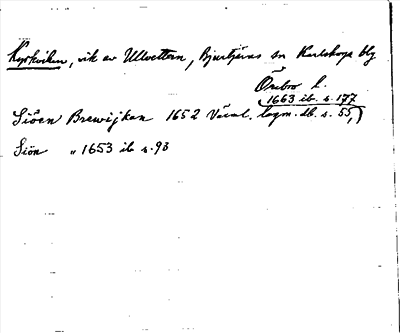 Kyrkviken, vik av Ullvettern, Bjurtjärns sn Karlskoga blg
Örebro l.
(1663 ib. s. 177
Siöen Brewijkan 1652 Värml. lagm. db. s. 55,)
Siön " 1653 ib s. 93